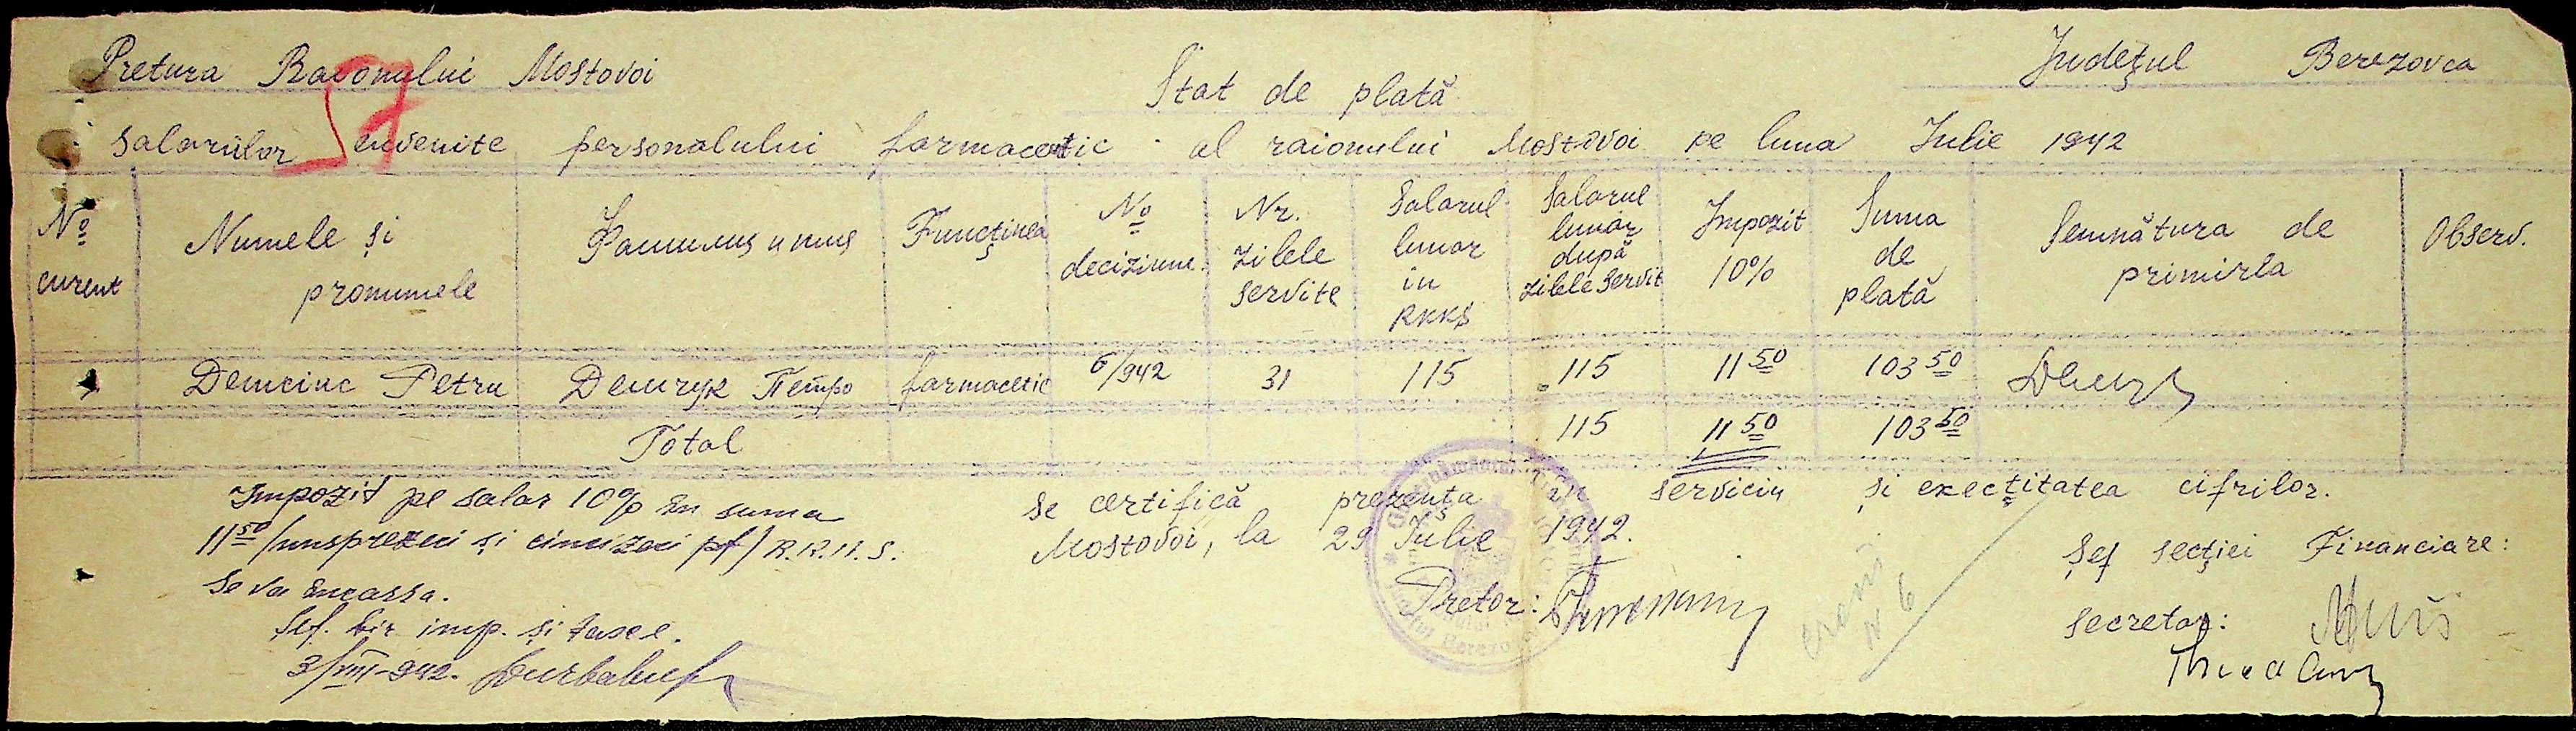 Pretura Raionului Mostovoi
Județul Berezovca
57
Stat de plată
salariilor cuvenite personalului farmaceutic al raionului Mostovoi pe luna Iulie 1942
No curent | Numele și pronumele | Фамилия и имя | Funcținea | No deciziune | Nr. zilele servite | Salarul lunar în RKKS | Salarul lunar după zilele servit | Impozit 10% | Suma de plată | Semnătura de primirla | Observ.
1 | Demciuc Petru | Демчук Петро | farmacetic | 6/942 | 31 | 115 | 115 | 11 50 | 103 50
Total | 115 | 11 50 | 103 50
Impozit pe salar 10% în suma
11 50 /unsprezeci și cincizeci pf/ R.K.K.S.
se va încassa.
Șef. bir imp. și taxe.
3/VIII-942.
Se certifică prezența în serviciu și execțitatea cifrilor.
Mostovoi, la 29 Iulie 1942.
Pretor:
N 6
Șef secției Financiare:
Secretar: